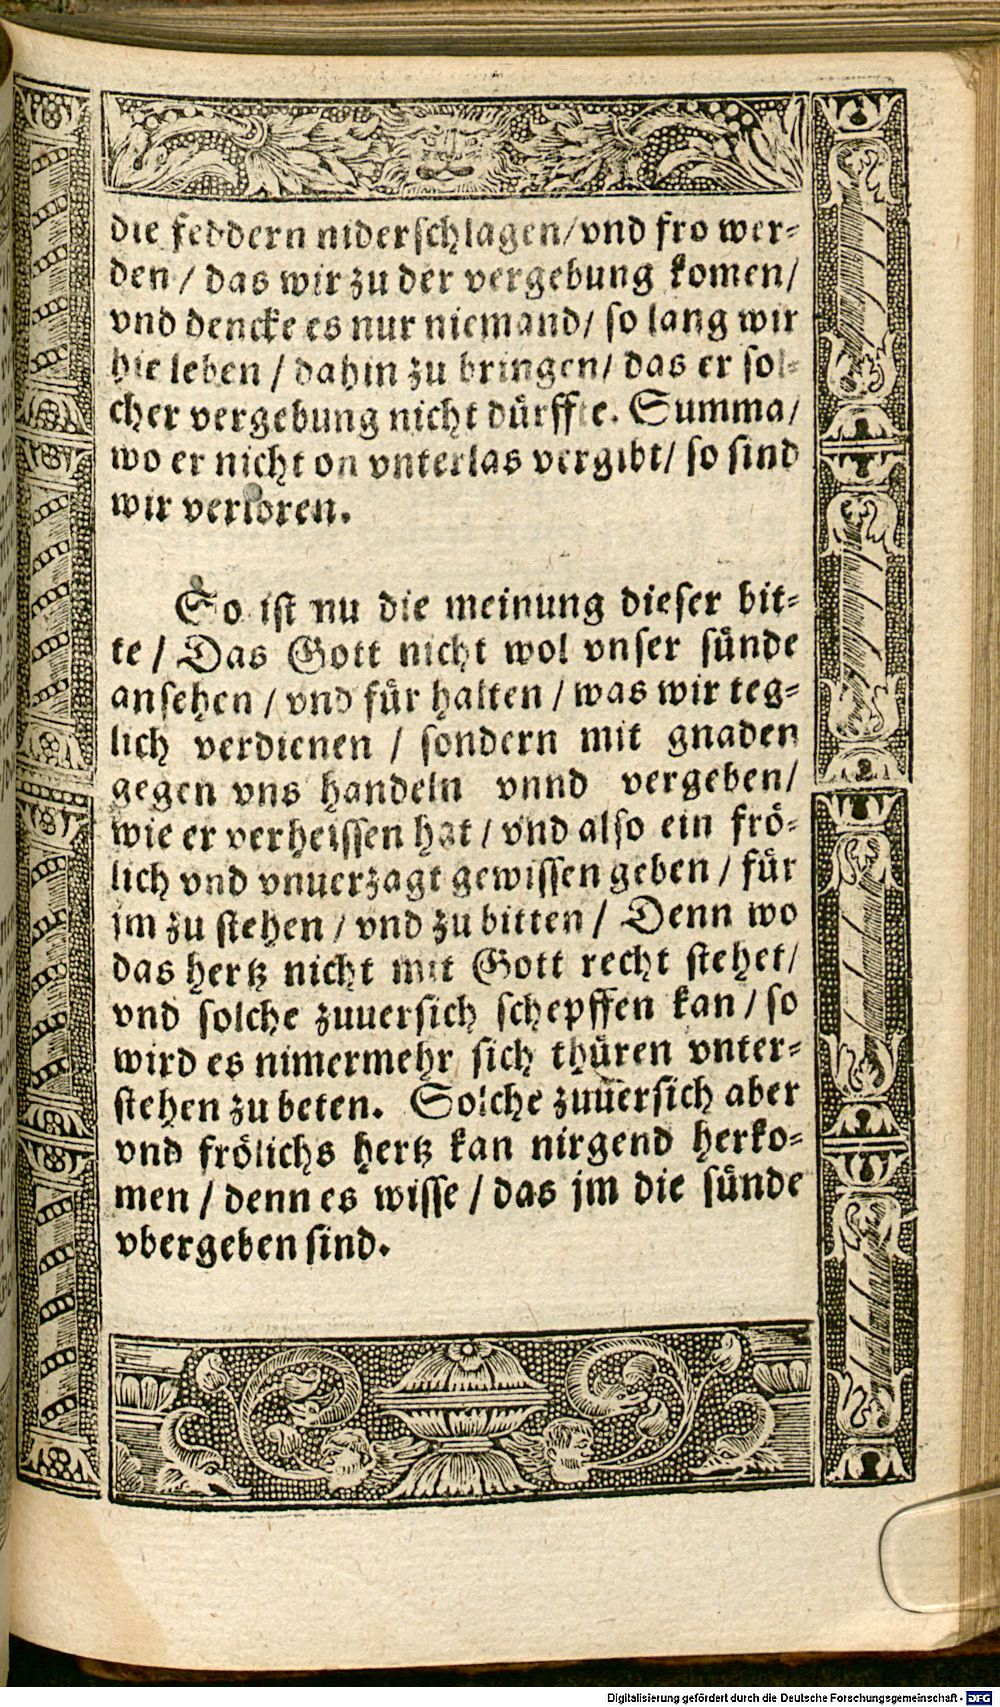 die feddern niderschlagen/vnd fro wer-
den / das wir zu der vergebung komen/
vnd dencke es nur niemand/ so lang wir
hie leben / dahin zu bringen/ das er sol-
cher vergebung nicht dürffte. Summa/
wo er nicht on vnterlas vergibt/ so sind
wir verloren.
So ist nu die meinung dieser bit-
te / Das Gott nicht wol vnser sünde
ansehen / vnd für halten / was wir teg-
lich verdienen / sondern mit gnaden
gegen vns handeln vnnd vergeben/
wie er verheissen hat / vnd also ein frö-
lich vnd vnuerzagt gewissen geben / für
jm zu stehen / vnd zu bitten / Denn wo
das hertz nicht mit Gott recht stehet/
vnd solche zuuersich schepffen kan / so
wird es nimermehr sich thüren vnter-
stehen zu beten. Solche zuuersich aber
vnd frölichs hertz kan nirgend herko-
men / denn es wisse / das jm die sünde
vbergeben sind.
Digitalisierung gefördert durch die Deutsche Forschungsgemeinschaft - DFG